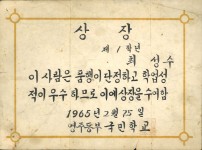 상장
제 1 학년
최성수
이 사람은 품행이 단정하고 학업성
적이 우수하므로 이에 상장을 수여함
1965년 2월 15일
영주동부국민학교